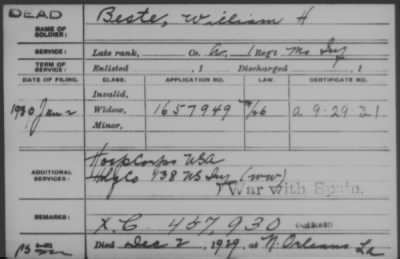 DEAD
NAME OF SOLDIER: Beste, William H
SERVICE: Late rank, Co. A. 1 Reg't Mo Inf
TERM OF SERVICE: Enlisted , 1 Discharged , 1
DATE OF FILING. CLASS. APPLICATION NO. LAW. CERTIFICATE NO.
Invalid,
1930 Jan 2 Widow, 1657949 a 9-29-21
Minor,
ADDITIONAL SERVICES: Hosp Corps USA
Hdq Co 138 US Inf (WW)
War with Spain.
REMARKS: X.C. 457,930
Died Dec 2, 1929, at N. Orleans La